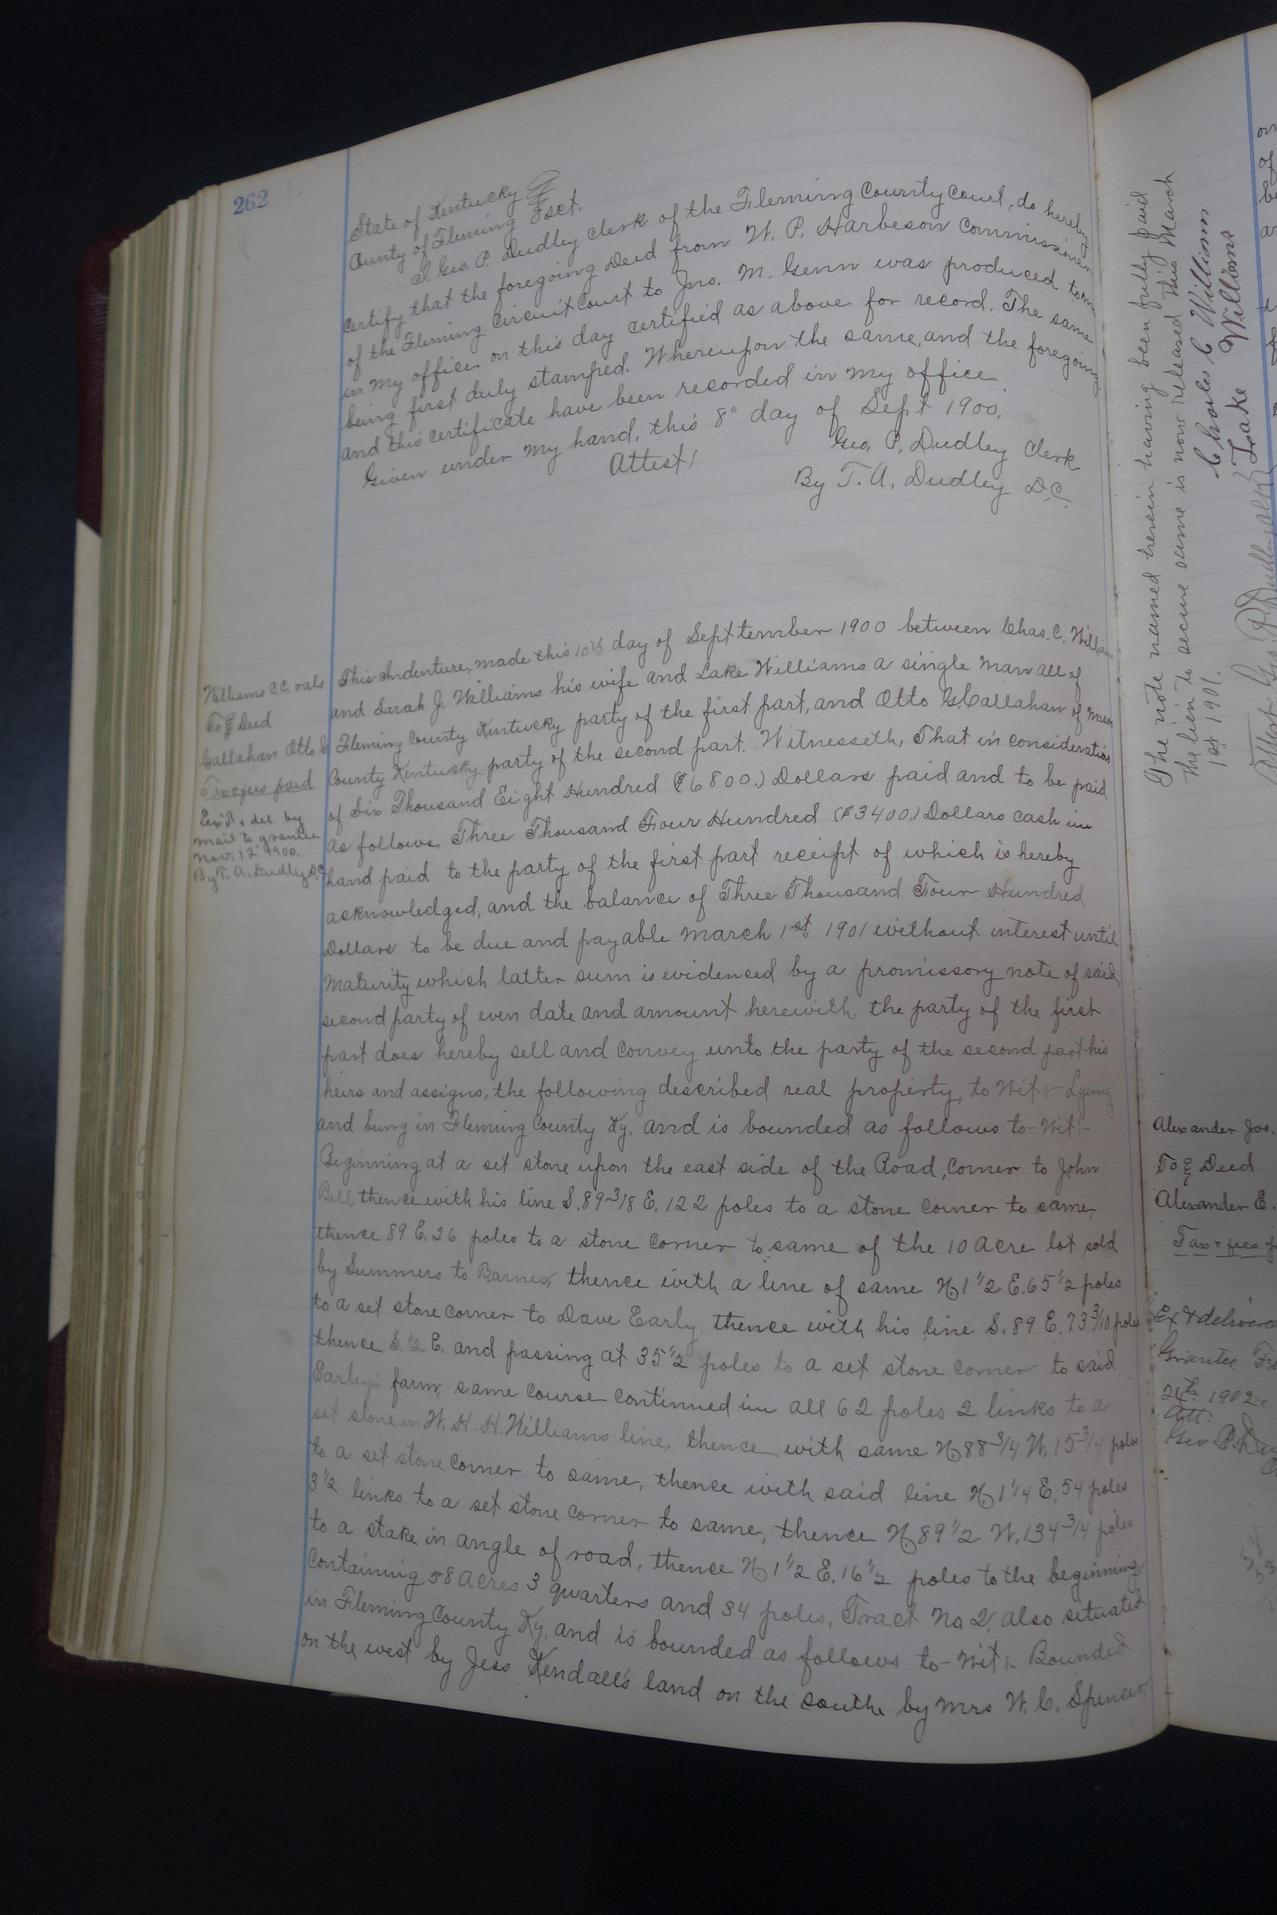 262
State of Kentucky
County of Fleming Sct.
I. Geo. P. Dudley clerk of the Fleming County Court, do hereby
certify that the foregoing Deed from W. P. Harbeson Commissioner
of the Fleming Circuit Court to Jno. M. Genn was produced to me
in my office on this day certified as above for record. The same
being first duly stamped. Whereupon the same, and the foregoing
and this certificate have been recorded in my office
Given under my hand, this 8" day of Sept 1900.
Geo. P. Dudley Clerk
Attest!
By T. A. Dudley D.C.
Williams C.C. &als
To Deed
Callahan Otto G
Tax & fees paid
Ex'd & del by
mail to grantee
Nov. 12" 1900.
By T. A. Dudley D.C.
This Indenture, made this 10th day of Septtember 1900 between Chas. C. Williams
and Sarah J. Williams his wife and Lake Williams a single man all of
Fleming County Kentucky party of the first part, and Otto G. Callahan of
County Kentucky party of the second part. Witnesseth, That in consideration
of Six Thousand Eight Hundred ($6800.) Dollars paid and to be paid
as follows, Three Thousand Four Hundred ($3400.) Dollars cash in
hand paid to the party of the first part receipt of which is hereby
acknowledged, and the balance of Three Thousand Four Hundred
Dollars to be due and payable March 1st 1901 without interest until
maturity which latter sum is evidenced by a promissory note of said
second party of even date and amount herewith, the party of the first
part does hereby sell and convey unto the party of the second part his
heirs and assigns, the following described real property, to Wit:- Lying
and being in Fleming County Ky. and is bounded as follows to-Wit:-
Beginning at a set stone upon the east side of the Road, corner to John
Bell, thence with his line S. 89 3/8 E. 122 poles to a stone corner to same,
thence 89 E. 26 poles to a stone corner to same of the 10 acre lot sold
by Summers to Barnes, thence with a line of same N 1 1/2 E. 65 1/2 poles
to a set stone corner to Dave Early, thence with his line S. 89 E. 73 3/10 poles
thence S. 1/2 E. and passing at 35 1/2 poles to a set stone corner to said
Earley's farm, same course continued in all 62 poles 2 links to a
set stone in W. H. H. Williams line, thence with same N 88 3/4 W. 15 3/4 poles
to a set stone corner to same, thence with said line N 1 1/4 E. 54 poles
3 1/2 links to a set stone corner to same, thence N 89 1/2 W. 134 3/4 poles
to a stake in angle of road, thence N 1 1/2 E. 16 1/2 poles to the beginning
containing 58 acres 3 quarters and 34 poles, Tract No 2, also situated
in Fleming County Ky. and is bounded as follows to-Wit:- Bounded
on the west by Jess Kendall's land on the southe by Mrs W. C. Spencer,
The note named herein having been fully paid
the lien to secure same is now released this March
1st 1901.
Charles C Williams
Lake Williams
Attest Geo. P. Dudley
Alexander Jas.
To Deed
Alexander E.
Tax & fees
Ex & delivered
Grantee
1902
Att:
Geo. P.